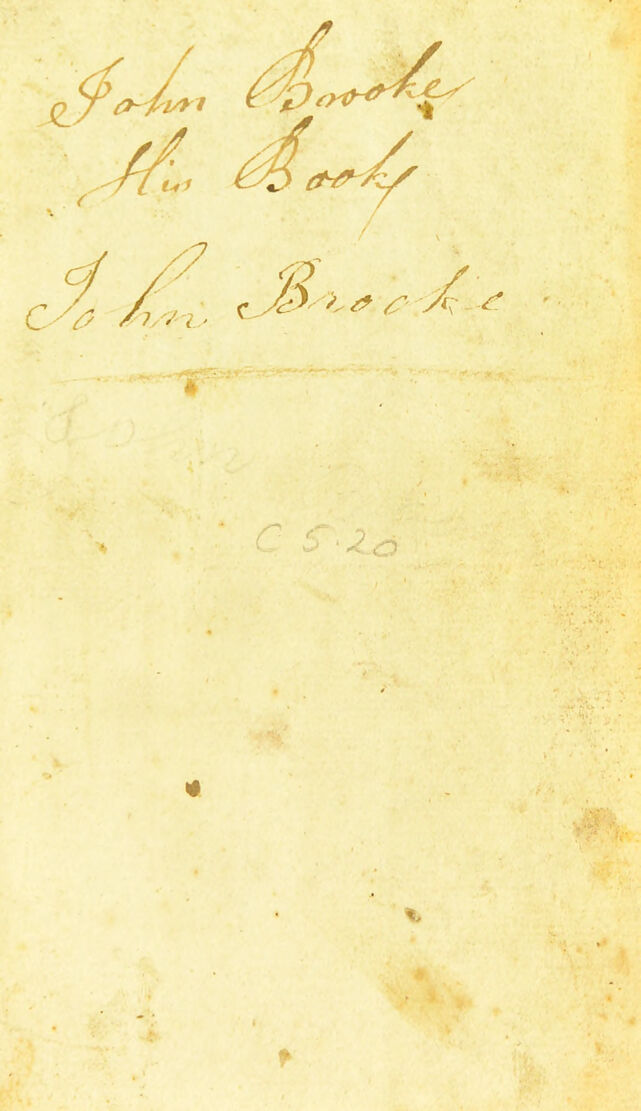 John Brooke
His Book
John Brooke
John
C 5.20